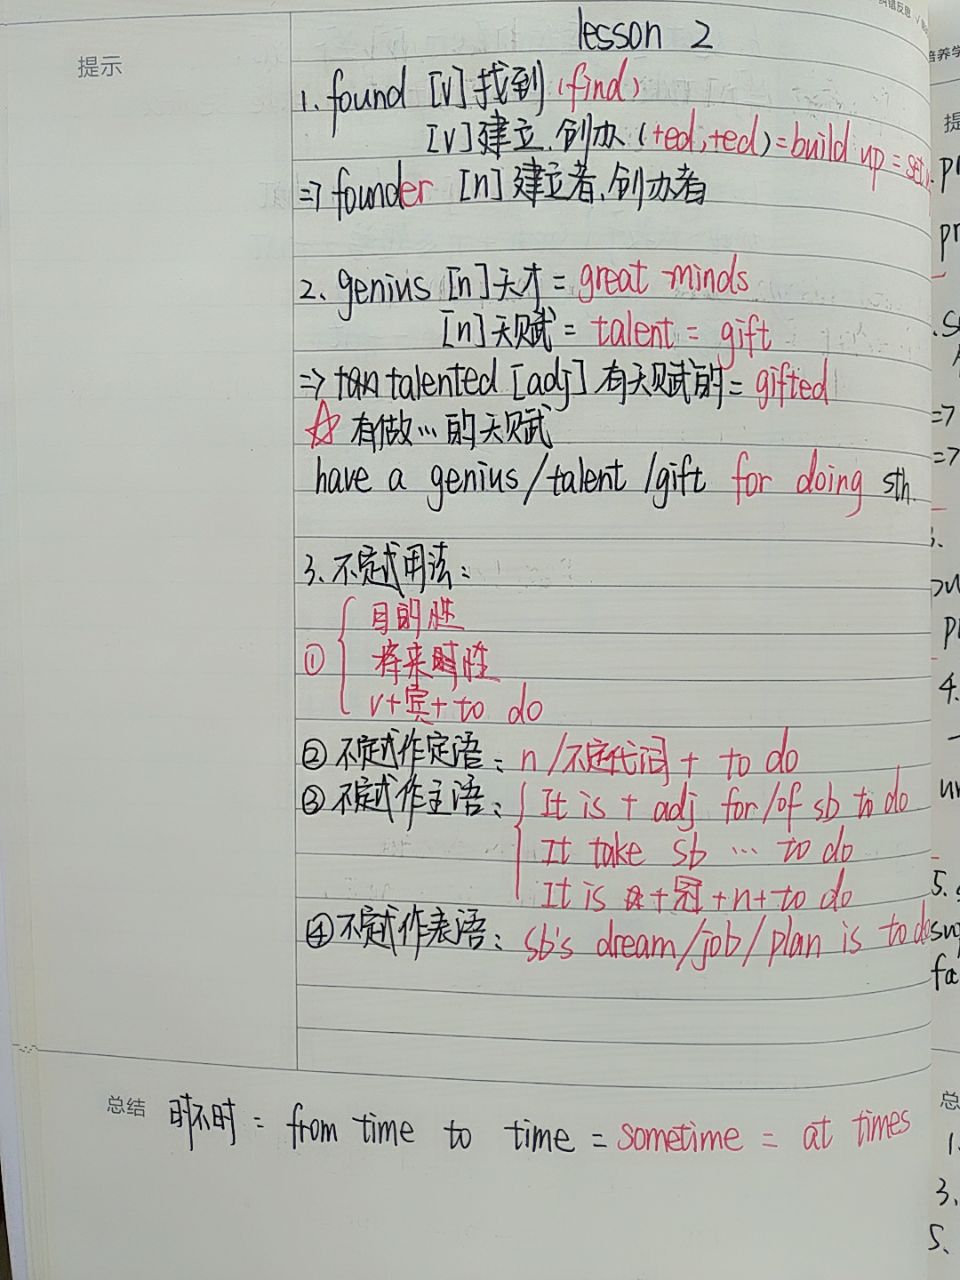 lesson 2
提示
1. found [v] 找到 (find)
[v] 建立、创办 (+ed, +ed) = build up = set
=> founder [n] 建立者、创办者
2. genius [n] 天才 = great minds
[n] 天赋 = talent = gift
=> talented [adj] 有天赋的 = gifted
☆ 有做…的天赋
have a genius/talent/gift for doing sth.
3. 不定式用法:
① { 目的性
将来时性
v+宾+to do
② 不定式作定语: n/不定代词 + to do
③ 不定式作主语: { It is + adj for/of sb to do
It take sb … to do
It is +冠+n+to do
④ 不定式作表语: sb's dream/job/plan is to do
总结 时不时 = from time to time = sometime = at times